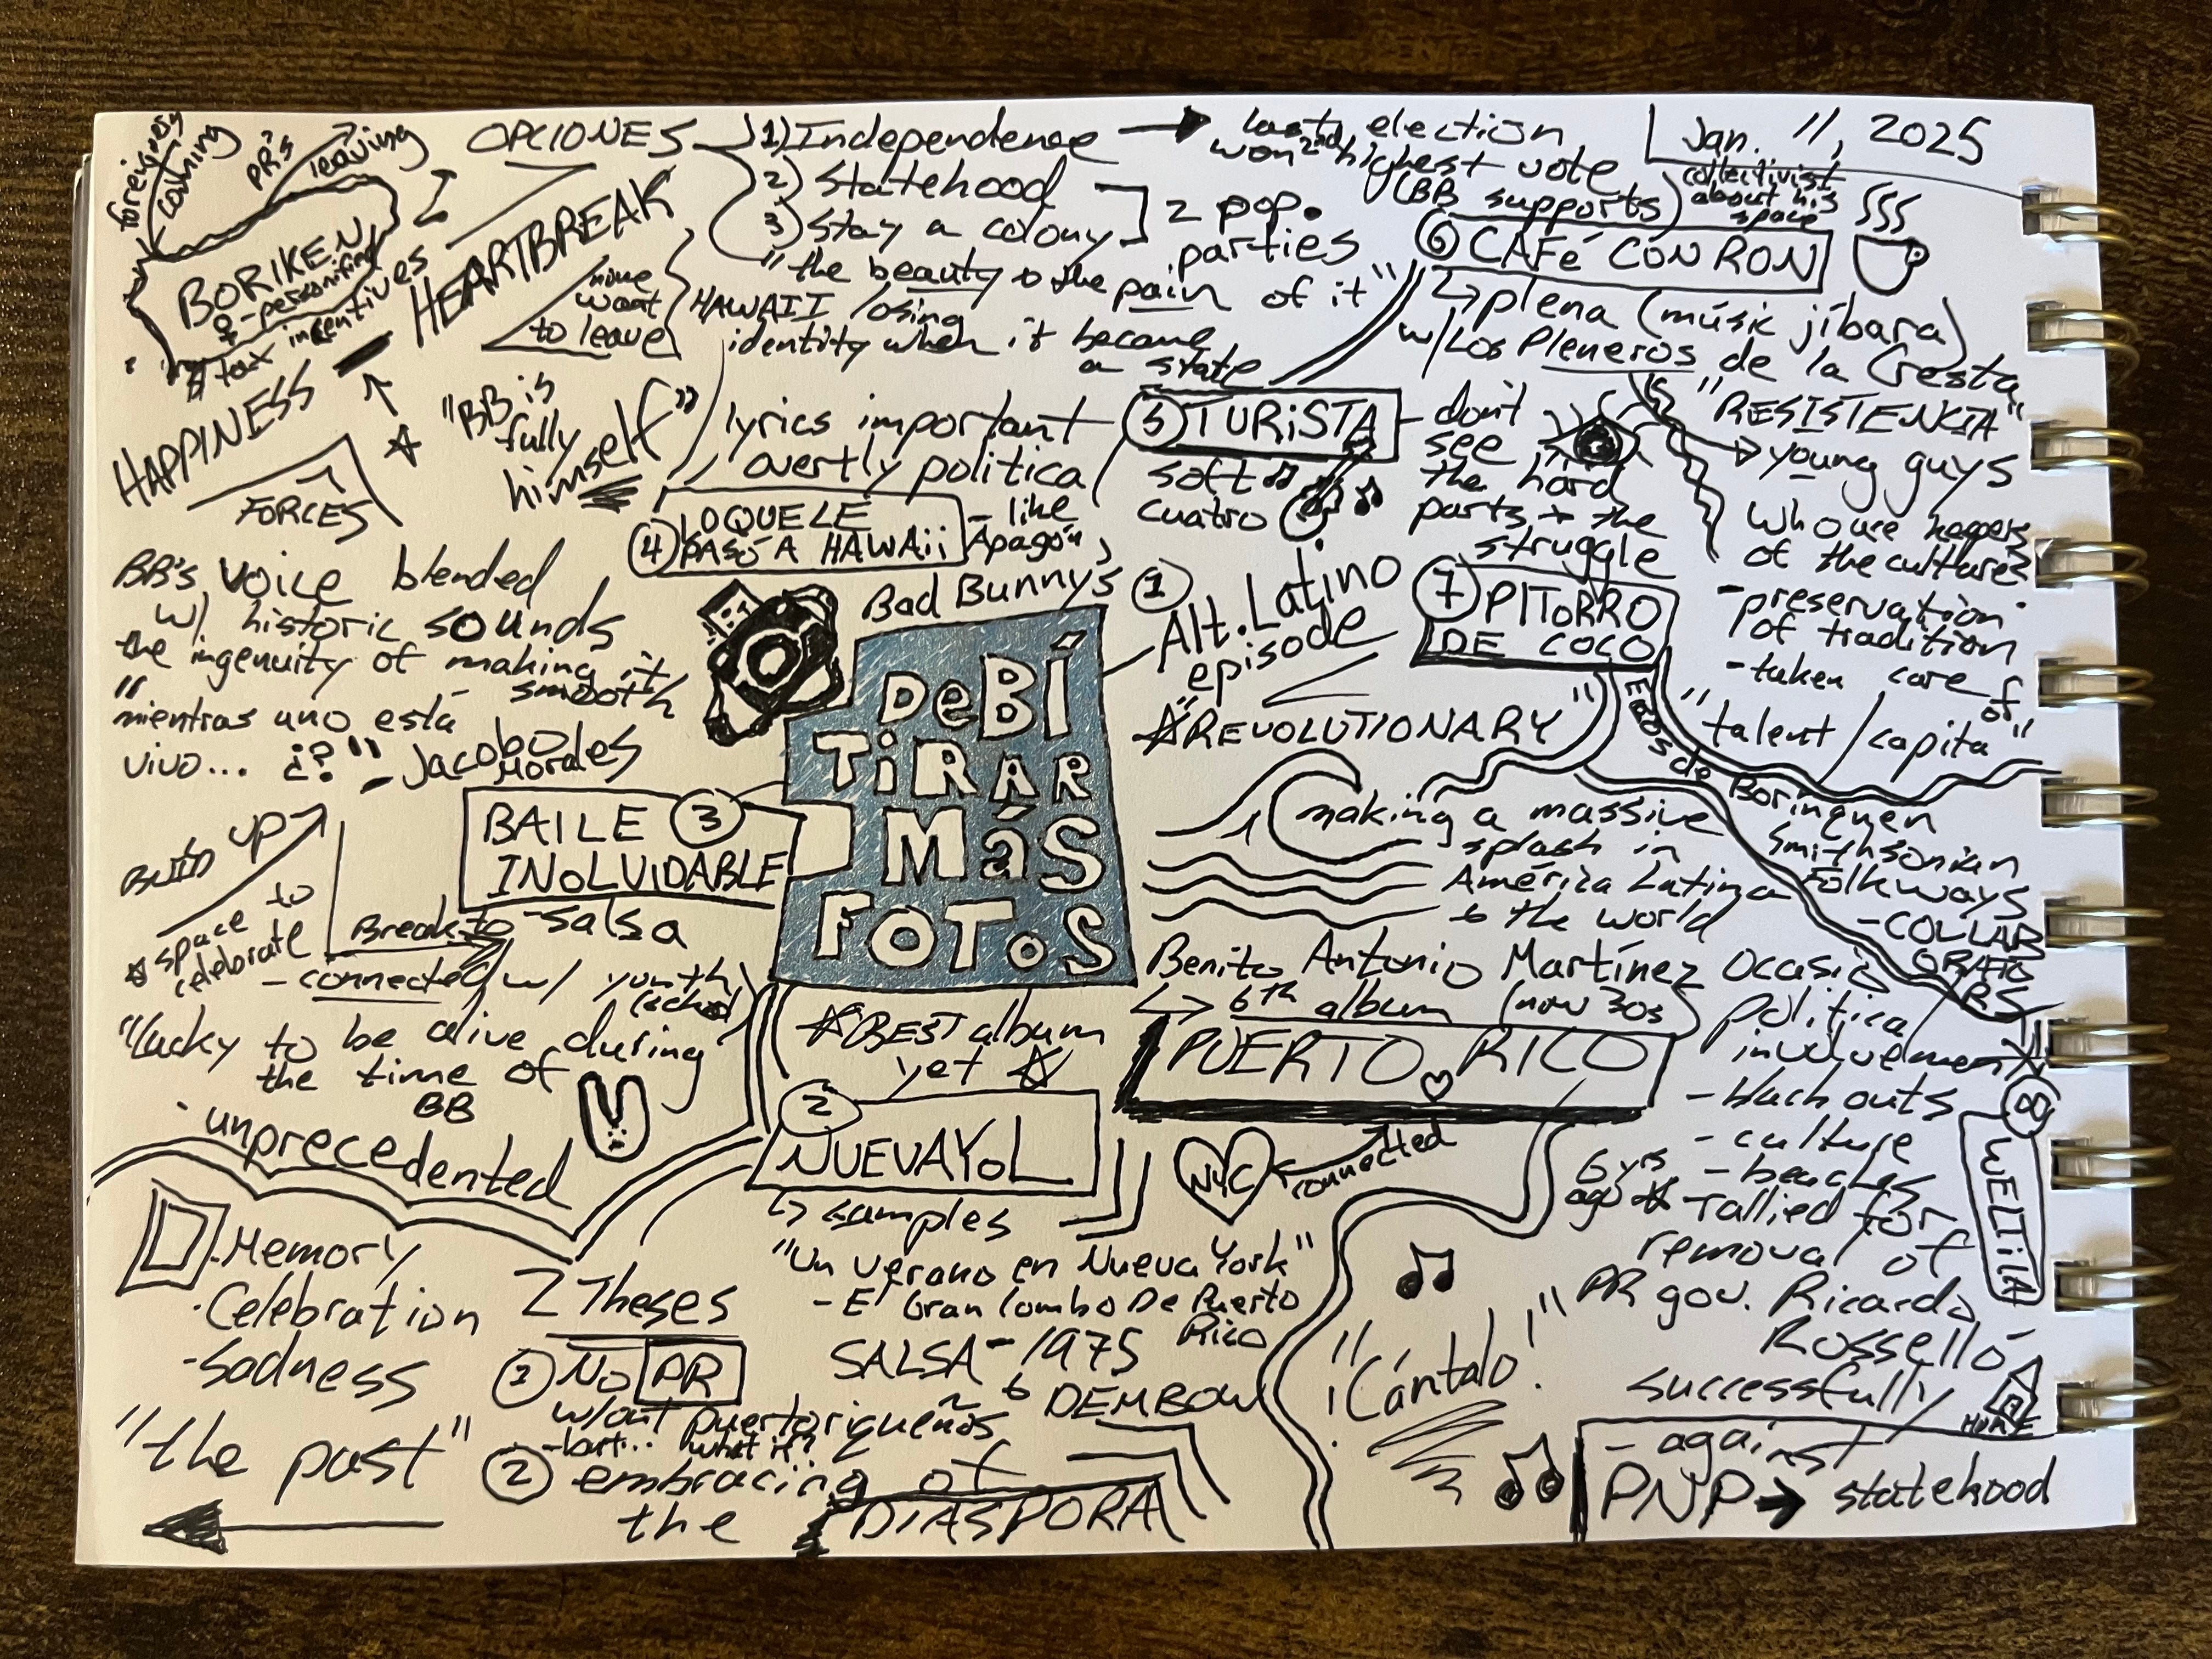 foreigners
coming
PR's
leaving
BORIKEN
♀ - personifing
tax incentives
HAPPINESS - HEARTBREAK
FORCES
none
want
to leave
OPCIONES
1) Independence → last election
won 2nd highest vote
(BB supports)
2) Statehood
3) Stay a colony
2 pop.
parties
"the beauty & the pain of it"
HAWAII losing
identity when it became
a state
Jan. 11, 2025
collectivist
about his
space
⑥ CAFé CON RON
↳ plena (músic jíbara)
w/ Los Pleneros de la Cresta
"RESISTENCIA"
→ young guys
who are keepers
of the culture
- preservation
of tradition
- taken care of
"talent/capita"
"BB is
fully
himself"
lyrics important
overtly political
⑤ TURiSTA
soft
cuatro
- don't
see
the hard
parts + the
struggle
④ LO QUE LE
PASÓ A HAWAii
- like
"Apagón"
⑦ PITORRO
DE COCO
Ecos de Borinquen
Smithsonian
Folkways
- COLLAB
ORATO
RS
BB's voice blended
w/ historic sounds
the ingenuity of making it
smooth
"mientras uno está
vivo... ¿?" - Jacobo
Morales
Bad Bunny's
DeBÍ
TiRAR
MáS
FOToS
① Alt.Latino
episode
☆"REVOLUTIONARY"
making a massive
splash in
América Latina
& the world
③ BAILE
INoLVIDABLE
- salsa
BUILD UP
☆ space to
celebrate
Break to
- connected w/ youth
"lucky to be alive during
the time of
BB
· unprecedented
☆BEST album
yet ☆
Benito Antonio Martínez Ocasio
↳ 6th album (now 30s)
PUERTO RICO
NYC
connected
② NUEVAYoL
↳ samples
"Un Verano en Nueva York"
- El Gran Combo De Puerto
Rico
SALSA - 1975
to DEMBOW
political
involvement
- black outs
- culture
- beaches
6 yrs
ago ☆ rallied for
removal of
PR gov. Ricardo
Rosselló
successfully
- against
PNP → statehood
⑧ WELTiTA
HOME
"¡Cántalo!"
· Memory
· Celebration
- Sadness
"the past"
2 Theses
① No PR
w/out puertoriqueños
- but... what if?
② embracing of
the DIASPORA